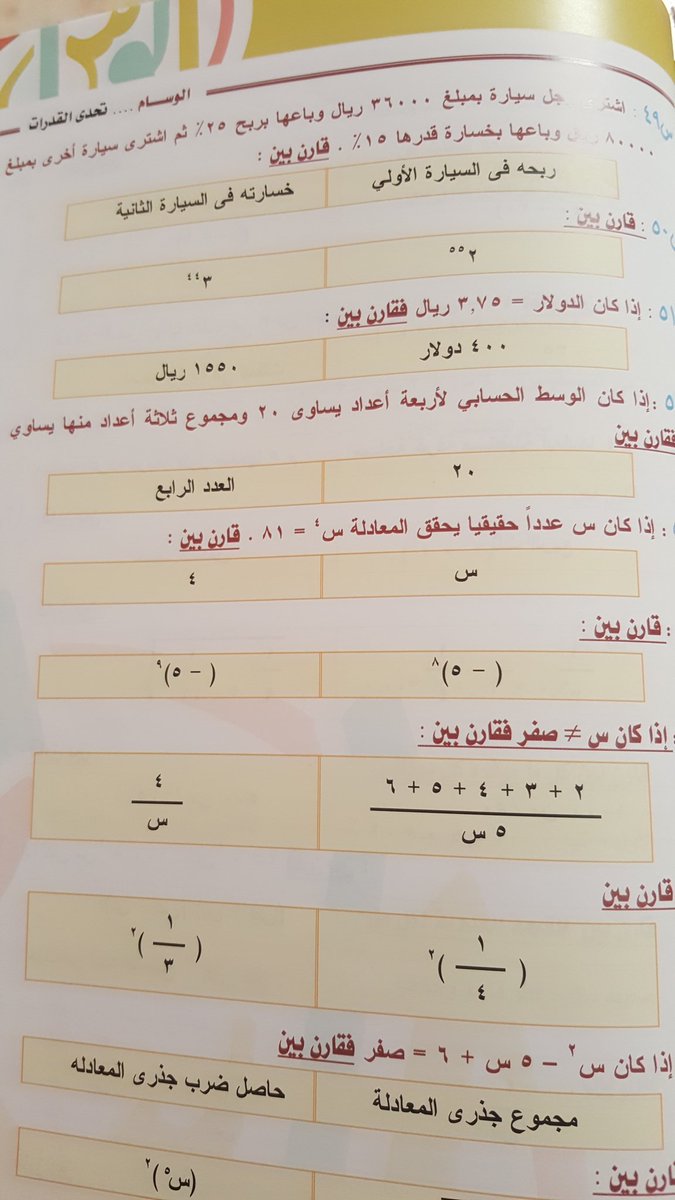 الوسام .... تحدى القدرات
س٤٩ : اشترى جل سيارة بمبلغ ٣٦٠٠٠ ريال وباعها بربح ٢٥٪ ثم اشترى سيارة أخرى بمبلغ
٨٠٠٠٠ ريال وباعها بخسارة قدرها ١٥٪ . قارن بين :
ربحه فى السيارة الأولي
خسارته فى السيارة الثانية
٥٠ : قارن بين :
٢^٥٥
٣^٤٤
٥١ : إذا كان الدولار = ٣,٧٥ ريال فقارن بين :
٤٠٠ دولار
١٥٥٠ ريال
٥ : إذا كان الوسط الحسابي لأربعة أعداد يساوى ٢٠ ومجموع ثلاثة أعداد منها يساوي
فقارن بين
٢٠
العدد الرابع
: إذا كان س عدداً حقيقيا يحقق المعادلة س^٤ = ٨١ . قارن بين :
س
٤
: قارن بين :
( - ٥)^٨
( - ٥)^٩
: إذا كان س ≠ صفر فقارن بين :
٢ + ٣ + ٤ + ٥ + ٦
٥ س
٤
س
قارن بين
( ١/٤ )^٢
( ١/٣ )^٢
إذا كان س^٢ – ٥ س + ٦ = صفر فقارن بين
مجموع جذرى المعادلة
حاصل ضرب جذرى المعادله
قارن بين :
(س^٥)^٢